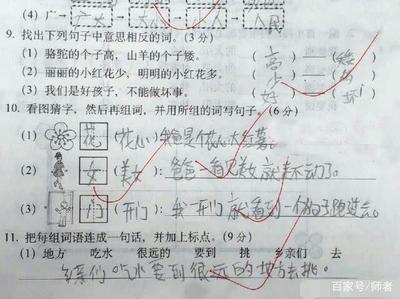 (4) 广— 广大 大人 人民
9. 找出下列句子中意思相反的词。(3分)
(1) 骆驼的个子高，山羊的个子矮。 (高)——(矮)
(2) 丽丽的小红花少，明明的小红花多。 (少)——(多)
(3) 我们是好孩子，不能做坏事。 (好)——(坏)
10. 看图猜字，然后再组词，并用所组的词写句子。(6分)
(1) 花 (花心) 我爸是个花心大红薯。
(2) 女 (美女): 爸爸一看见美女就走不动了。
(3) 门 (开门): 我一开门就看到一个狗子跑过去。
11. 把每组词语连成一句话，并加上标点。(9分)
(1) 地方 吃水 很远的 要到 挑 乡亲们 去
乡亲们吃水要到很远的地方去挑。
百家号/师者